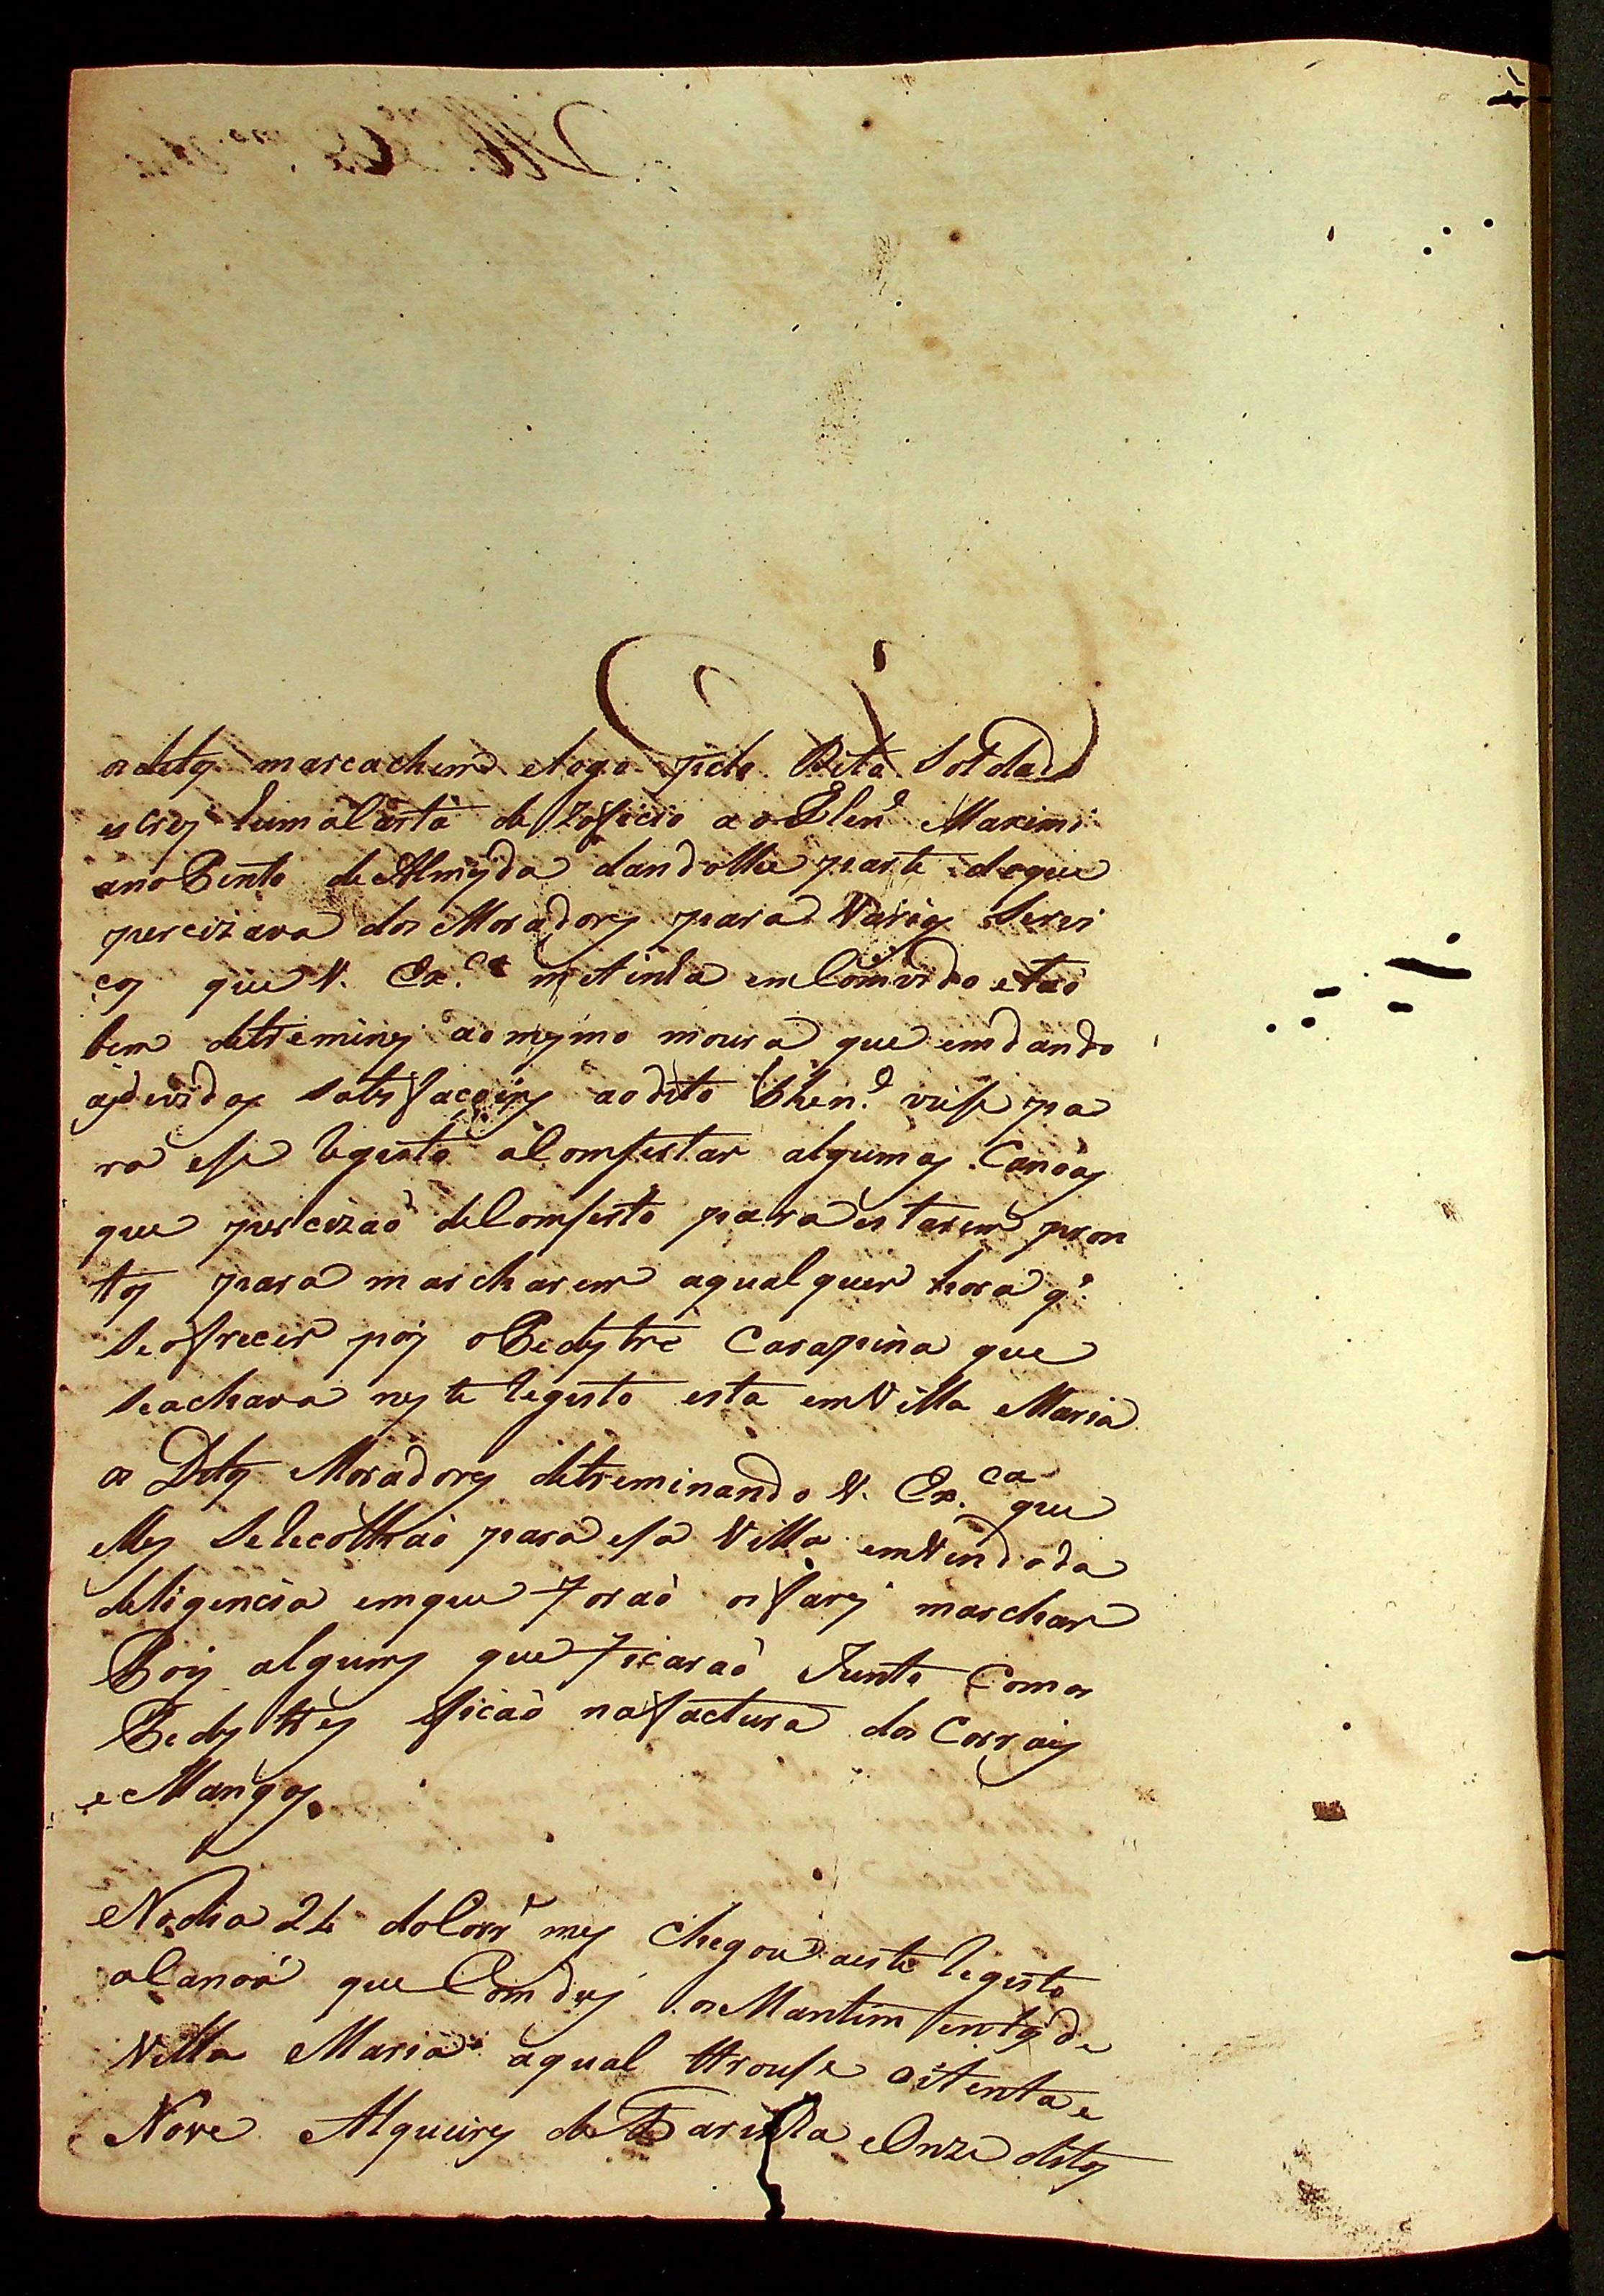 os ditos marcachem e logo pelo Dito Soldado
escrevj huma Carta de Zoficio ao Thenᵉ Maximi
ano Bento de Almejda dandolhe parte do que
percizava dos Moradores para Varios Servi
cos que V. Exᶜᵃ metinha emComvido etaõ
bem detreminej ao mesmo moura que emdando
as devidas satisfacoins aodito Thenᵉ viese pa
ra ese Registo aComsertar algumas Canoas
que percizaõ deComserto para estarem pron
tos para marcharem aqualquer hora q̃
Seofrecer pois oPedestre Carapina que
Seachava neste Registo esta emVilla Maria
os Ditos Moradores detreminando V. Ex.ᶜᵃ que
elles Serecolhaõ para esa Villa emVindo da
deligencia emque foraõ os farej marchar
Pois alguns que ficaraõ Junto Comos
Pedestres eficaõ nafactura dos Corrais
e Mangos.
Nodia 24 doCorrᵉ mes Chegou aeste Registo
aCanoa que Comduz os Mantimentos de
Villa Maria aqual trouse oitenta e
Nove Alqueires de Farinha e Onze ditos